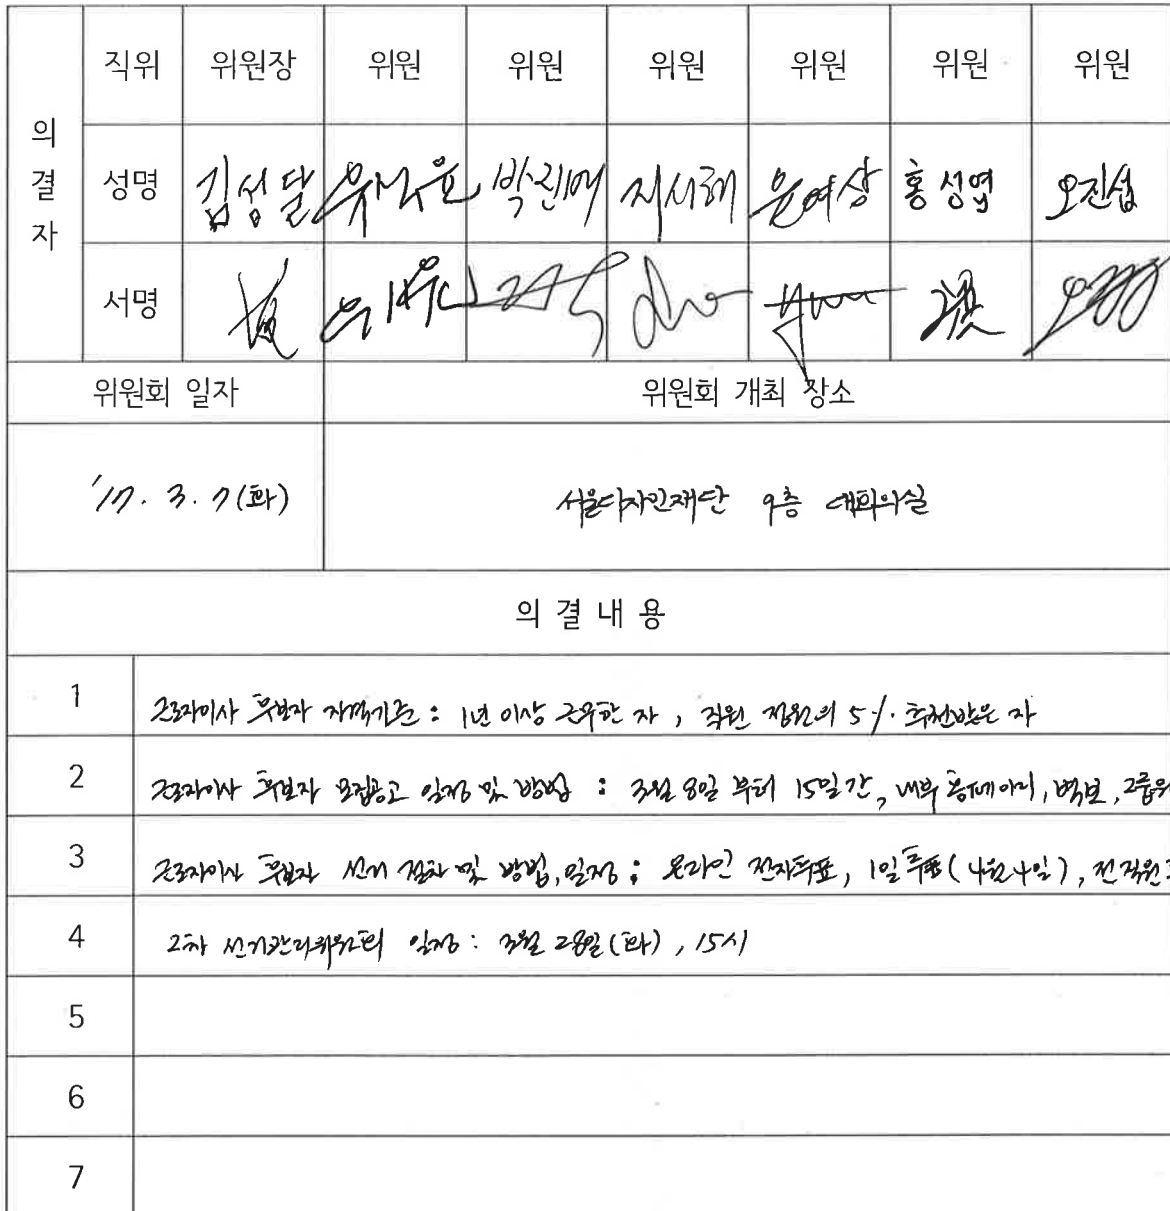 의결자
직위 위원장 위원 위원 위원 위원 위원 위원
성명 김성달 박진배 지시해 윤여상 홍성엽 오진섭
서명
위원회 일자 위원회 개최 장소
'17. 3. 7(화) 서울디자인재단 9층 대회의실
의 결 내 용
1 근로자이사 후보자 자격기준 : 1년 이상 근무한 자, 직원 정원의 5% 추천받은 자
2 근로자이사 후보자 모집공고 일정 및 방법 : 3월 8일 부터 15일간, 내부 홈페이지, 벽보, 그룹웨
3 근로자이사 후보자 선거 절차 및 방법, 일정 : 온라인 전자투표, 1일 투표(4월 4일), 전직원
4 2차 선거관리위원회 일정 : 3월 28일(화), 15시
5
6
7